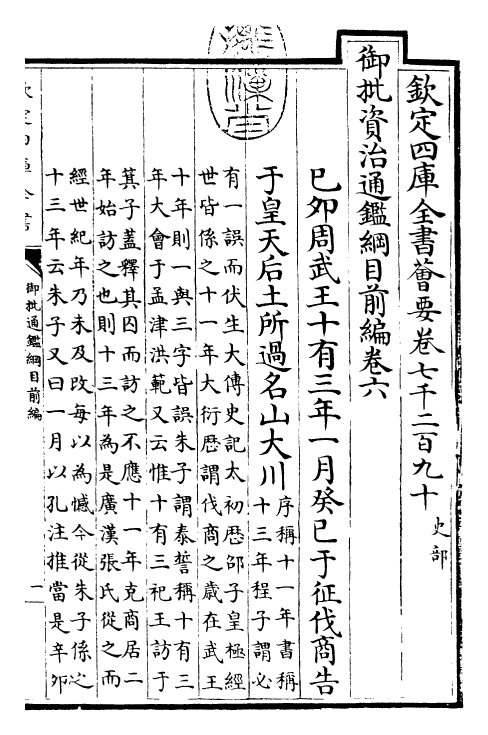 欽定四庫全書薈要卷七千二百九十
史部
御批資治通鑑綱目前編卷六
己卯周武王十有三年一月癸巳于征伐商告
于皇天后土所過名山大川
序稱十一年書稱
十三年程子謂必
有一誤而伏生大傳史記太初歴邵子皇極經
世皆係之十一年大衍歴謂伐商之歳在武王
十年則一與三字皆誤朱子謂泰誓稱十有三
年大會于孟津洪範又云惟十有三祀王訪于
箕子葢釋其囚而訪之不應十一年克商居二
年始訪之也則十三年為是廣漢張氏從之而
經世紀年乃未及改每以為憾今從朱子係之
十三年云朱子又曰一月以孔注推當是辛卯
御批通鑑綱目前編
一